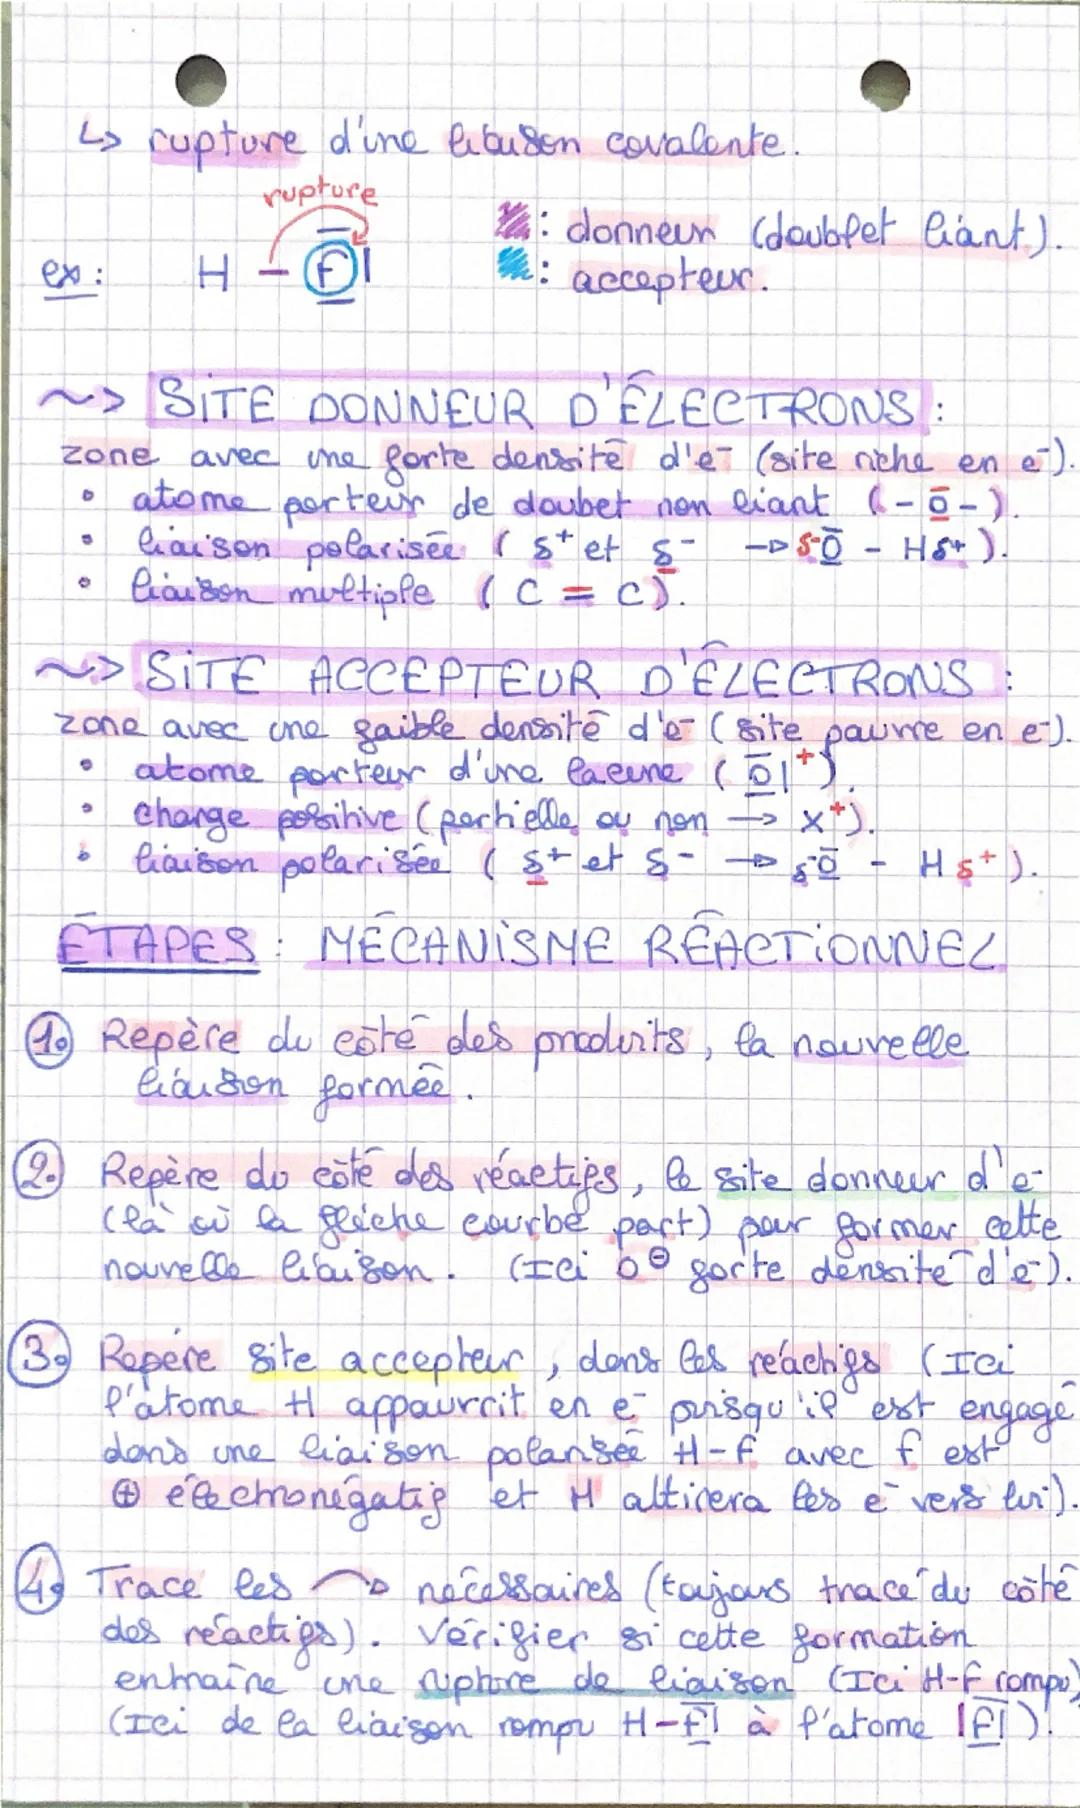 ↳ rupture d'une liaison covalente.
rupture
: donneur (doublet liant).
ex : H - F|
: accepteur.
~> SITE DONNEUR D'ÉLECTRONS :
zone avec une forte densité d'e⁻ (site riche en e⁻).
• atome porteur de doubet non liant (-O-).
• liaison polarisée (δ+ et δ- → δ-O - Hδ+).
• liaison multiple (C = C).
~> SITE ACCEPTEUR D'ÉLECTRONS :
zone avec une faible densité d'e⁻ (site pauvre en e⁻).
• atome porteur d'une lacune (O|⁺).
• charge positive (partielle ou non → X⁺).
• liaison polarisée (δ+ et δ- → δ-O - Hδ+).
ÉTAPES : MÉCANISME RÉACTIONNEL
1. Repère du côté des produits, la nouvelle
liaison formée.
2. Repère du côté des réactifs, le site donneur d'e⁻
(là où la flèche courbe part) pour former cette
nouvelle liaison. (Ici O⊖ forte densité d'e⁻).
3. Repère site accepteur, dans les réactifs (Ici
l'atome H appauvrit en e⁻ puisqu'il est engagé
dans une liaison polarisée H-F avec F est
⊕ électronégatif et H attirera les e⁻ vers lui).
4. Trace les ↷ nécessaires (toujours trace du côté
des réactifs). Vérifier si cette formation
entraîne une rupture de liaison (Ici H-F rompu)
(Ici de la liaison rompu H-F| à l'atome |F|).